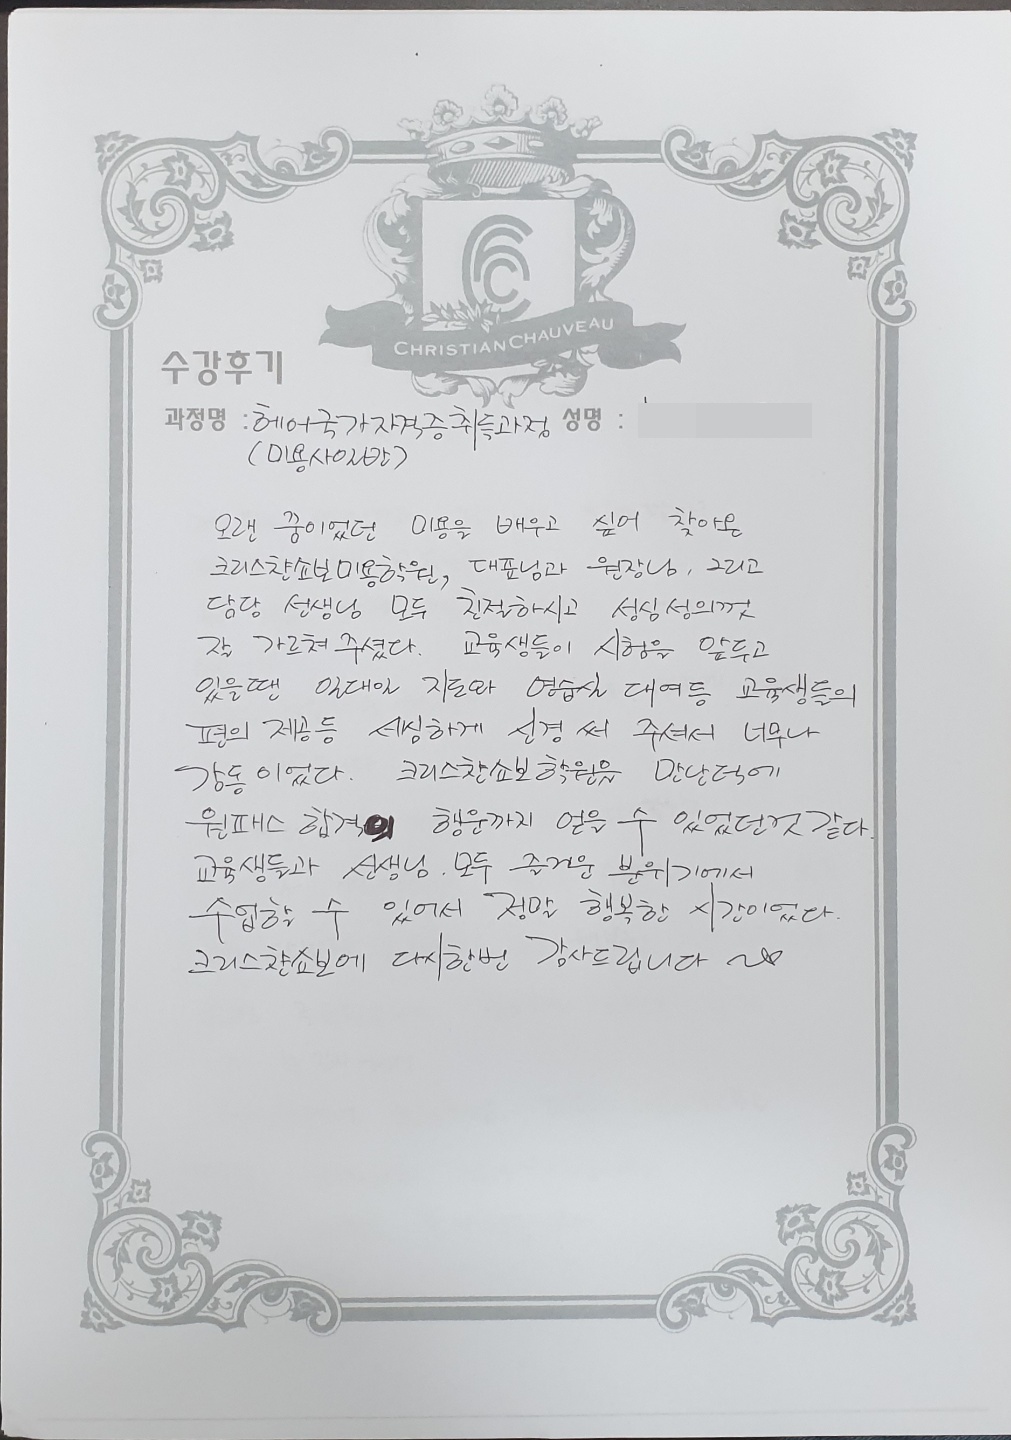 CHRISTIAN CHAUVEAU
수강후기
과정명 : 헤어국가자격증취득과정 성명 :
(미용사일반)
오랜 꿈이었던 미용을 배우고 싶어 찾아온
크리스챤쇼보미용학원, 대표님과 원장님, 그리고
담당 선생님 모두 친절하시고 성심성의껏
잘 가르쳐 주셨다. 교육생들이 시험을 앞두고
있을땐 일대일 지도와 연습실 대여등 교육생들의
편의 제공등 세심하게 신경 써 주셔서 너무나
감동이었다. 크리스챤쇼보학원을 만난덕에
원패스 합격의 행운까지 얻을 수 있었던것 같다.
교육생들과 선생님. 모두 즐거운 분위기에서
수업할 수 있어서 정말 행복한 시간이었다.
크리스챤쇼보에 다시한번 감사드립니다 ~♡